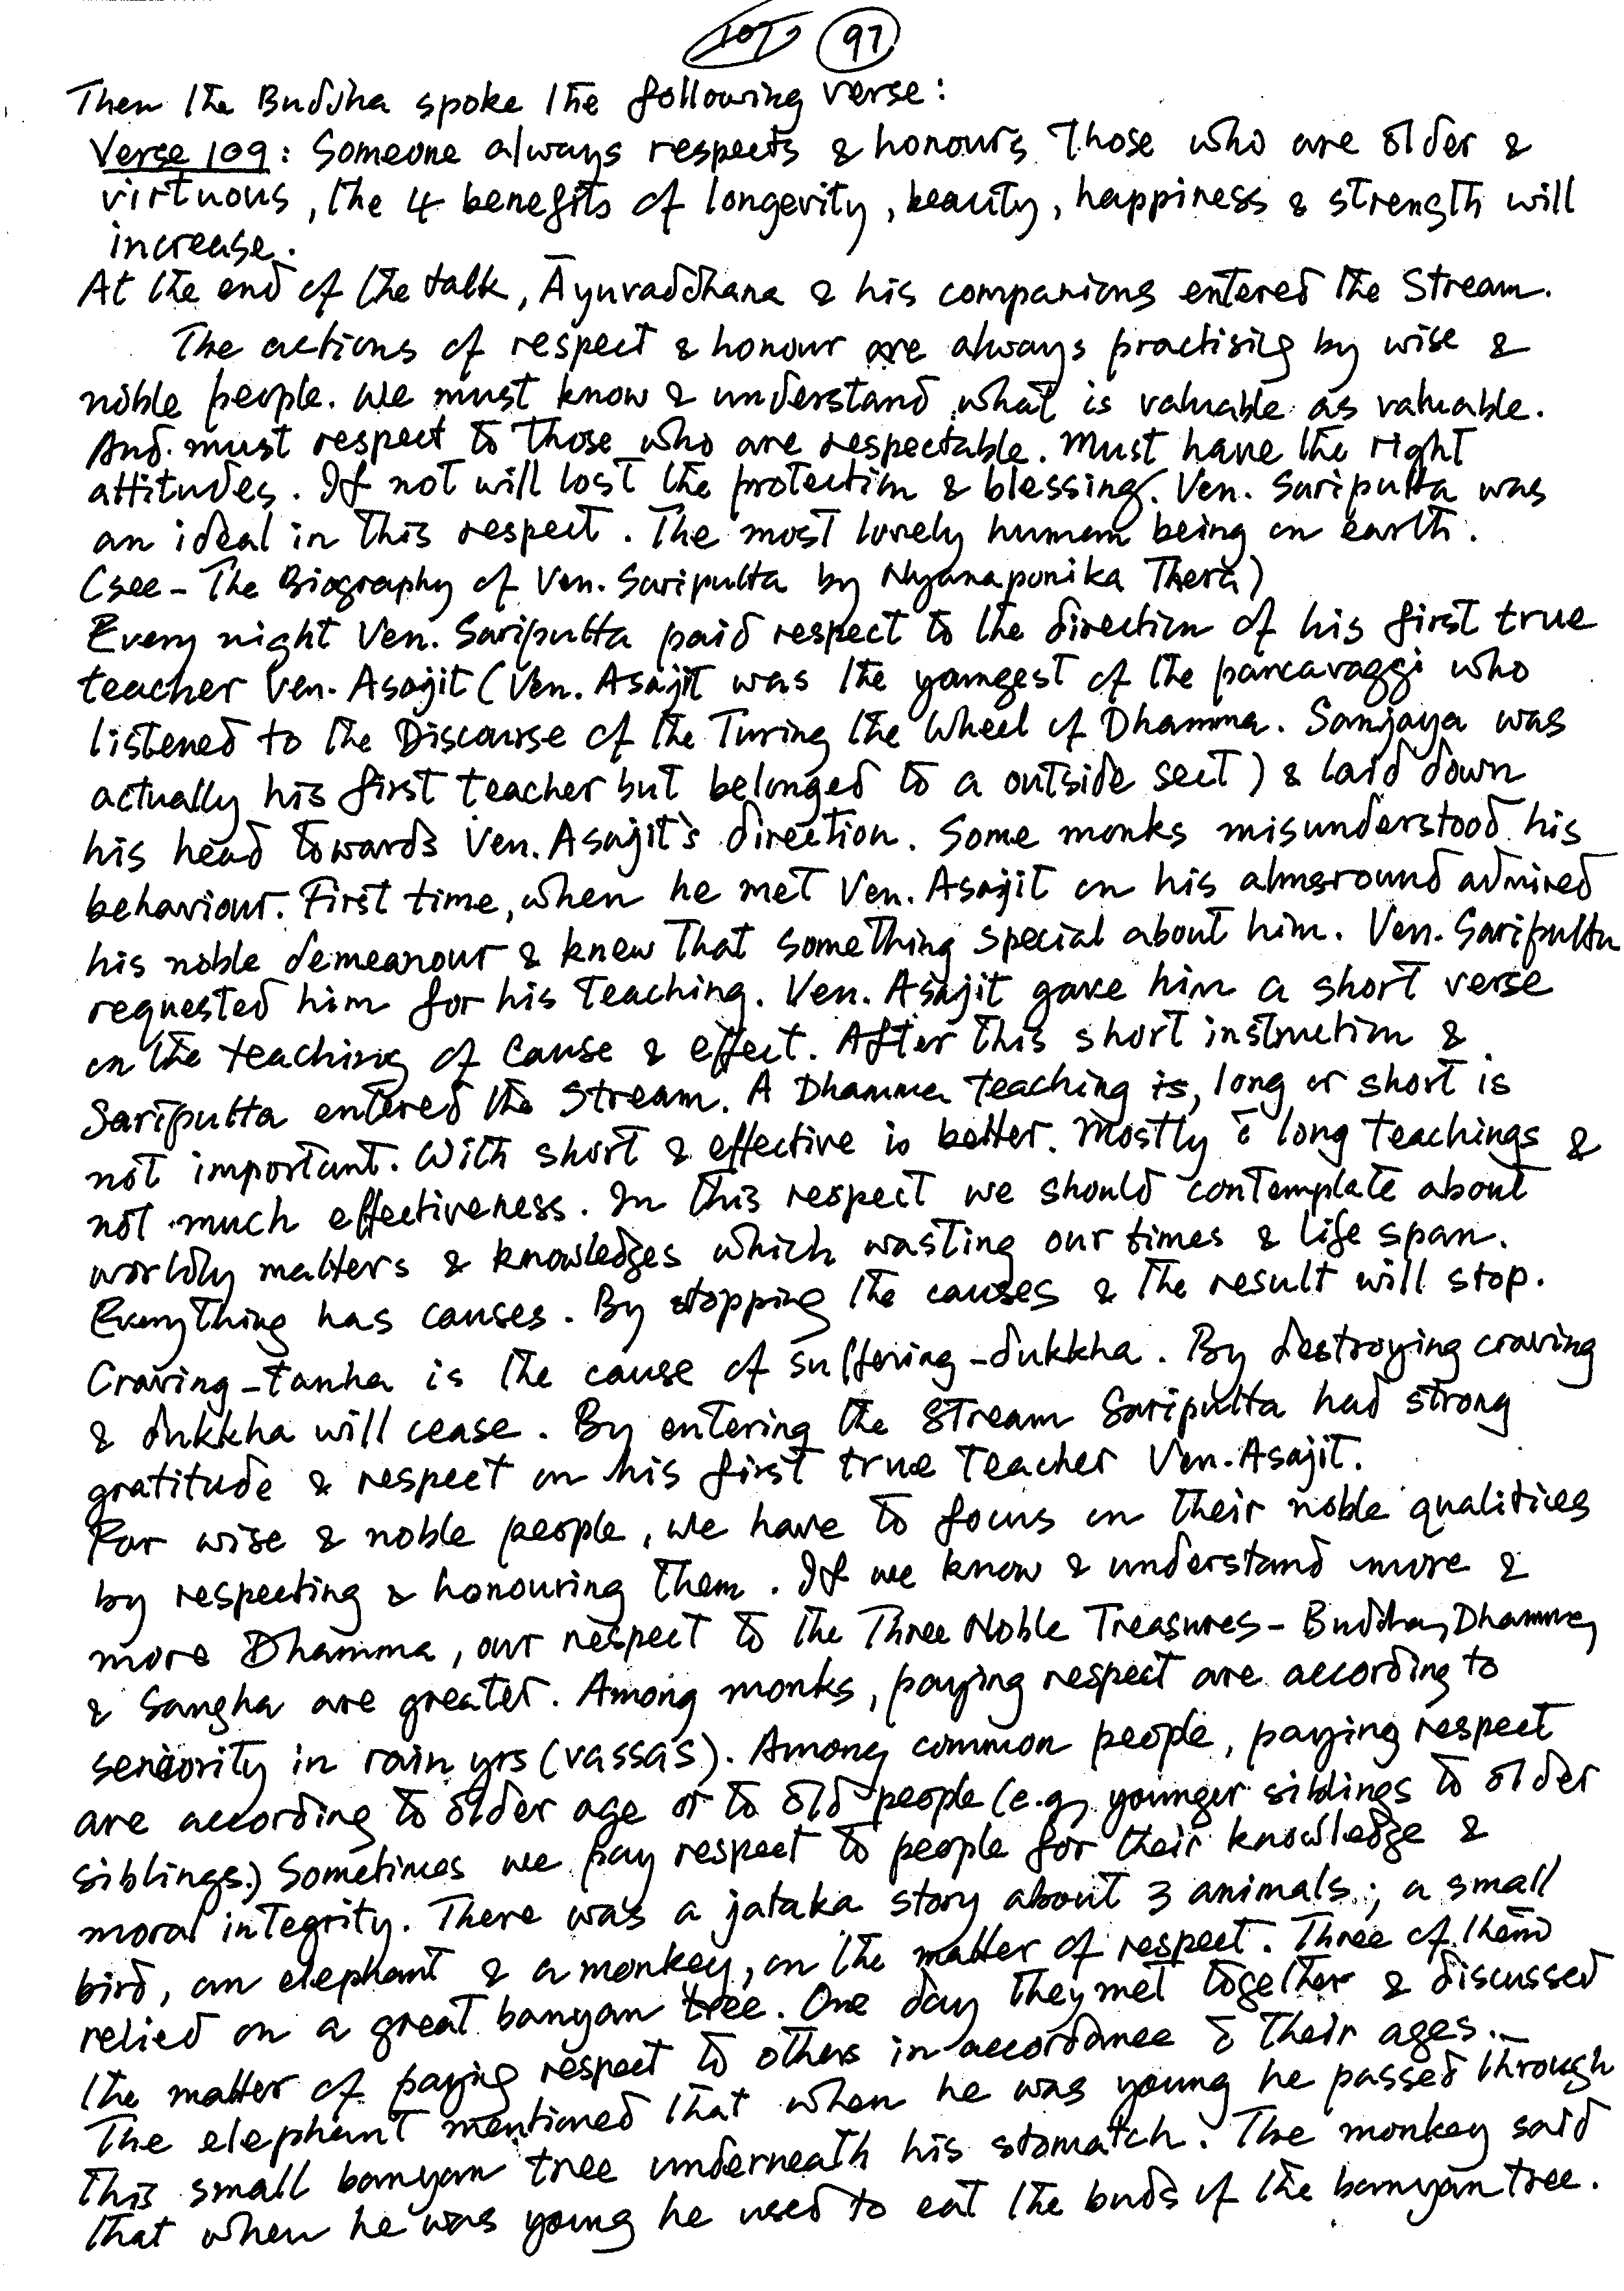 97
Then the Buddha spoke the following verse:
Verse 109: Someone always respects & honours those who are older &
virtuous, the 4 benefits of longevity, beauty, happiness & strength will
increase.
At the end of the talk, Āyuvaddhana & his companions entered the Stream.
The actions of respect & honour are always practising by wise &
noble people. We must know & understand what is valuable as valuable.
And must respect to those who are respectable. Must have the right
attitudes. If not will lost the protection & blessing. Ven. Sariputta was
an ideal in this respect. The most lovely human being on earth.
(see - The Biography of Ven. Sariputta by Nyanaponika Thera)
Every night Ven. Sariputta paid respect to the direction of his first true
teacher Ven. Asajit (Ven. Asajit was the youngest of the pancavaggi who
listened to the Discourse of the Turing the Wheel of Dhamma. Sanjaya was
actually his first teacher but belonged to a outside sect) & laid down
his head towards Ven. Asajit's direction. Some monks misunderstood his
behaviour. First time, when he met Ven. Asajit on his almsround admired
his noble demeanour & knew that something special about him. Ven. Sariputta
requested him for his teaching. Ven. Asajit gave him a short verse
on the teaching of cause & effect. After this short instruction &
Sariputta entered the Stream. A Dhamma teaching is, long or short is
not important. With short & effective is better. Mostly c̄ long teachings &
not much effectiveness. In this respect we should contemplate about
worldly matters & knowledges which wasting our times & life span.
Everything has causes. By stopping the causes & the result will stop.
Craving-tanha is the cause of suffering-dukkha. By destroying craving
& dukkha will cease. By entering the Stream Saripulta had strong
gratitude & respect on his first true teacher Ven. Asajit.
For wise & noble people, we have to focus on their noble qualities
by respecting & honouring them. If we know & understand more &
more Dhamma, our respect to the Three Noble Treasures - Buddha, Dhamma,
& Sangha are greater. Among monks, paying respect are according to
seniority in rain yrs (vassas). Among common people, paying respect
are according to older age or to old people (e.g, younger siblings to older
siblings.) Sometimes we pay respect to people for their knowledge &
moral integrity. There was a jataka story about 3 animals; a small
bird, an elephant & a monkey, on the matter of respect. Three of them
relied on a great banyan tree. One day they met together & discussed
the matter of paying respect to others in accordance c̄ their ages.
The elephant mentioned that when he was young he passed through
this small banyan tree underneath his stomatch. The monkey said
that when he was young he used to eat the buds of the banyan tree.